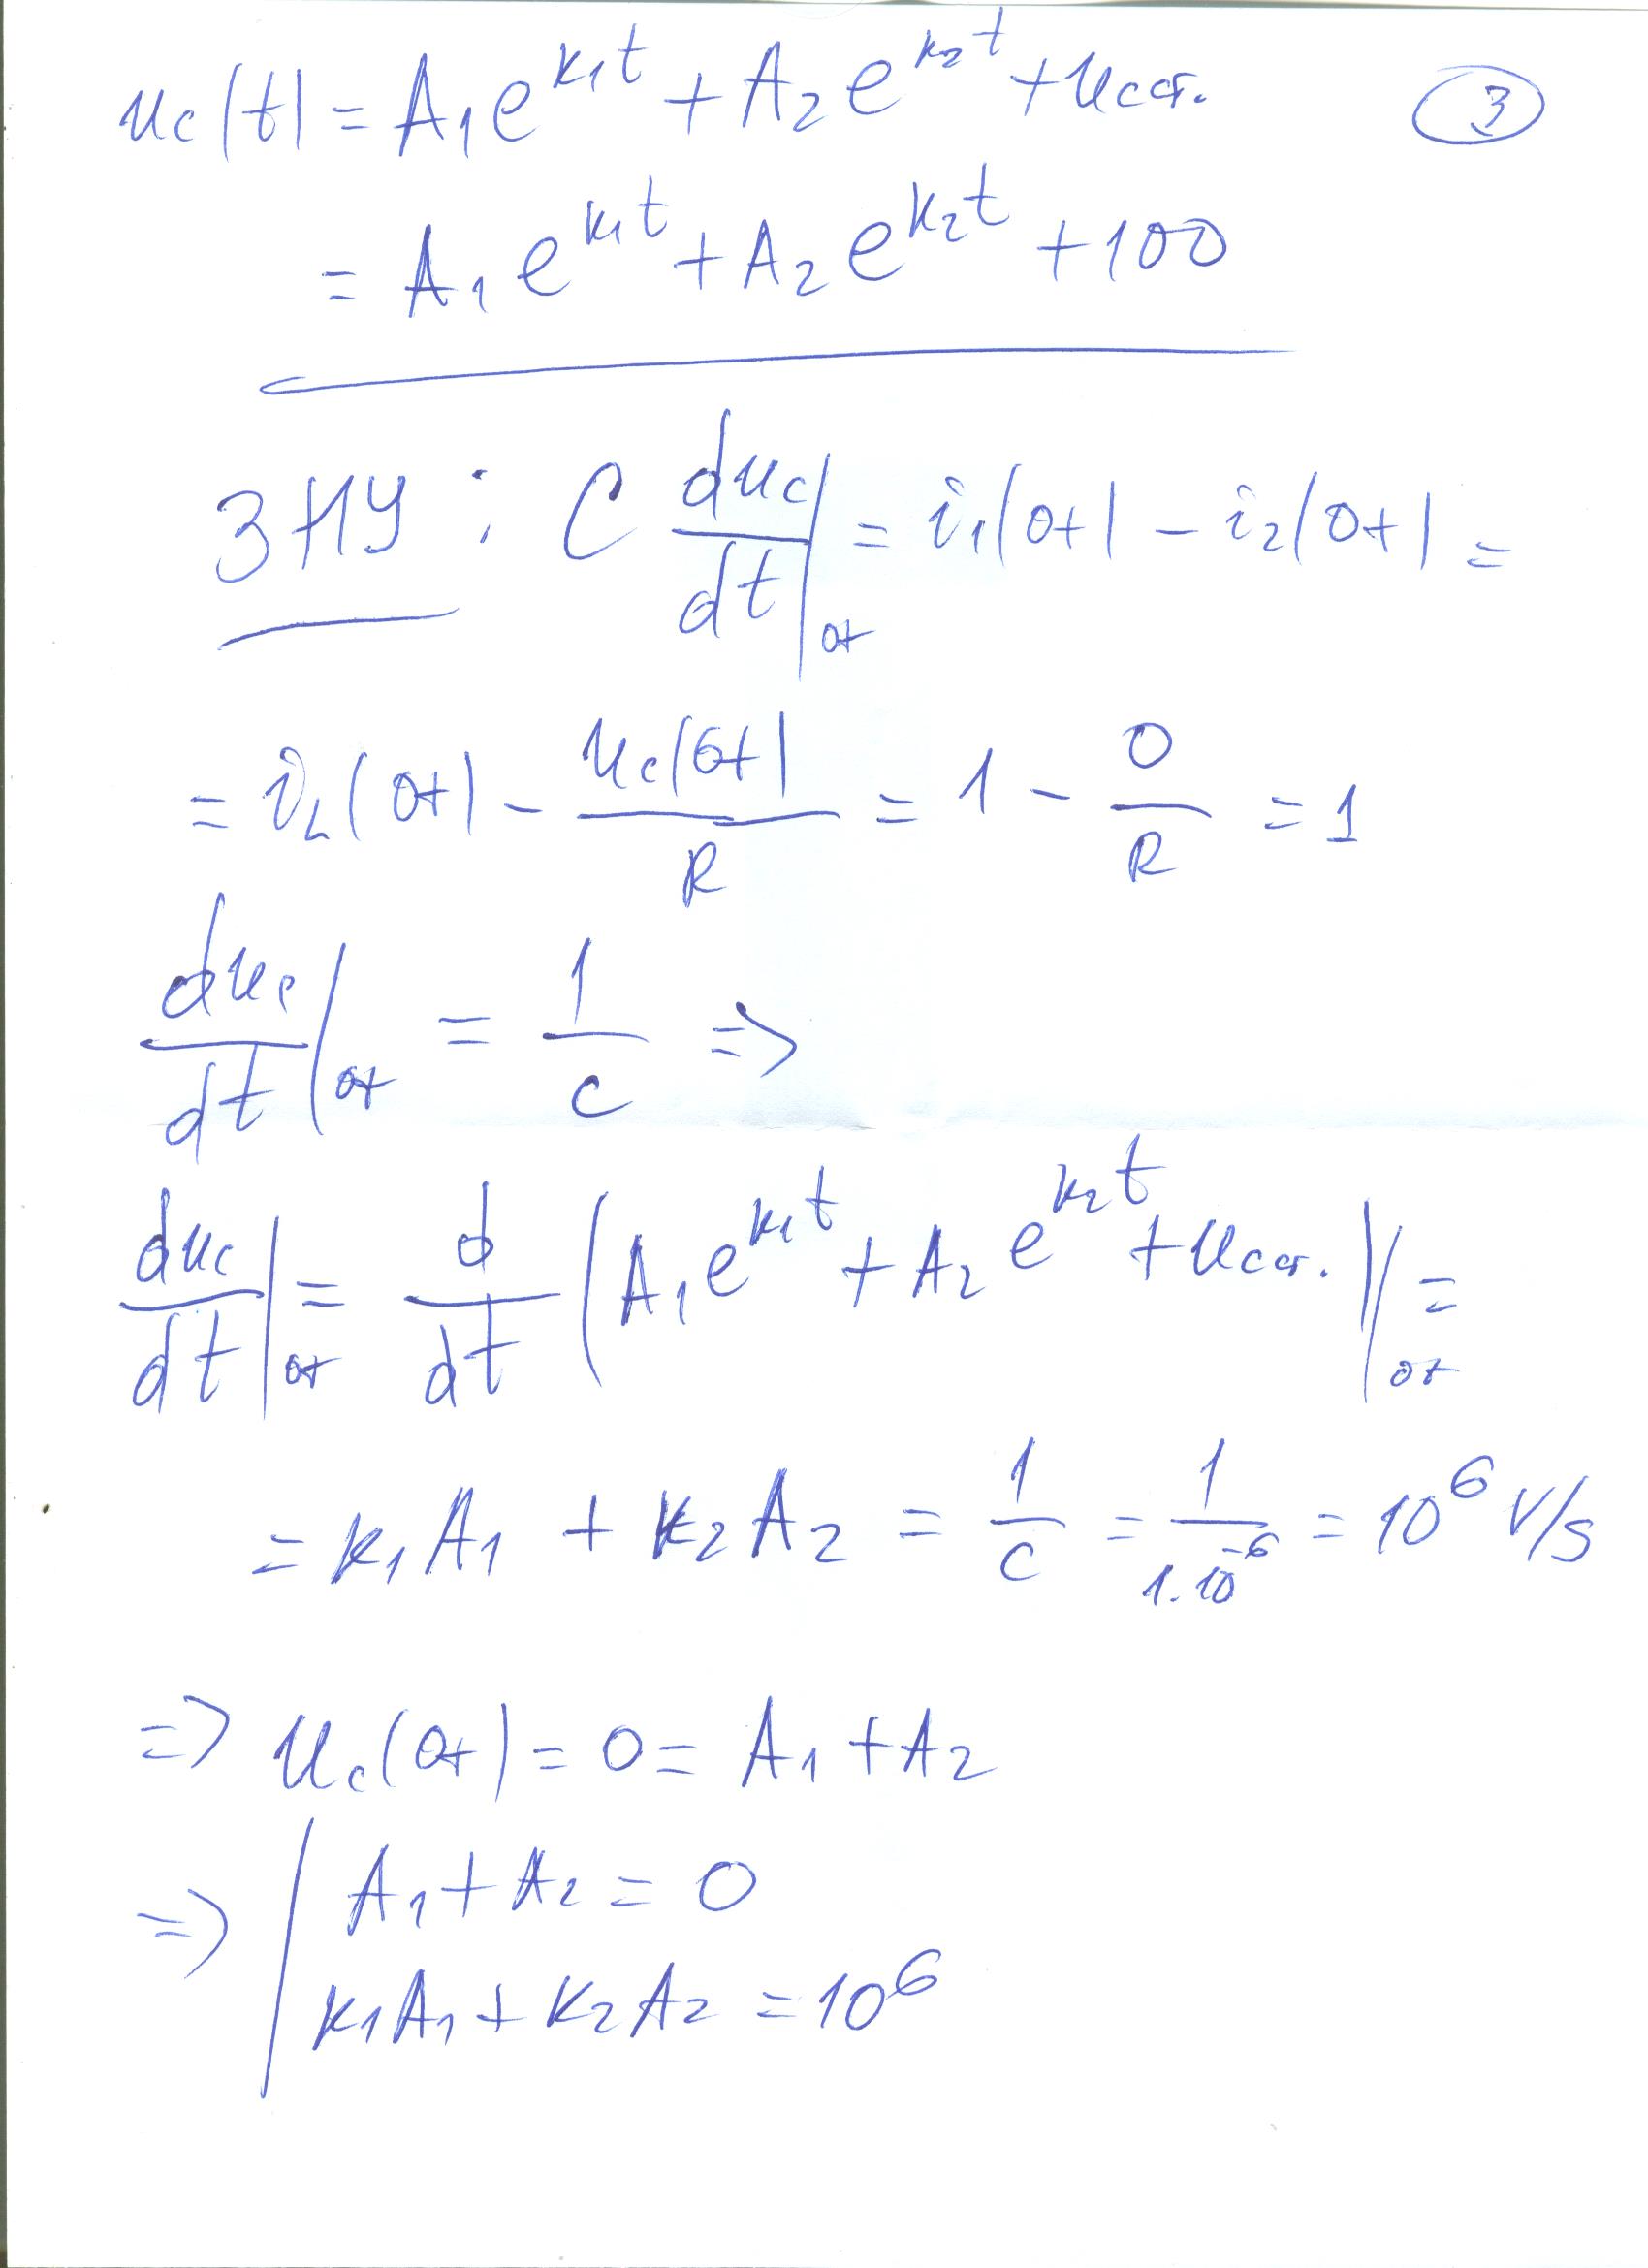 u_c(t) = A₁e^{k₁t} + A₂e^{k₂t} + u_{c ст.} ③
= A₁e^{k₁t} + A₂e^{k₂t} + 100
ЗНУ: C du_c/dt|₀₊ = i₁(0+) - i₂(0+) =
= i_L(0+) - u_c(0+)/R = 1 - 0/R = 1
du_c/dt|₀₊ = 1/C =>
du_c/dt|₀₊ = d/dt (A₁e^{k₁t} + A₂e^{k₂t} + u_{c ст.})|₀₊ =
= k₁A₁ + k₂A₂ = 1/C = 1/1.10⁻⁶ = 10⁶ V/s
=> u_c(0+) = 0 = A₁ + A₂
=> | A₁ + A₂ = 0
k₁A₁ + k₂A₂ = 10⁶